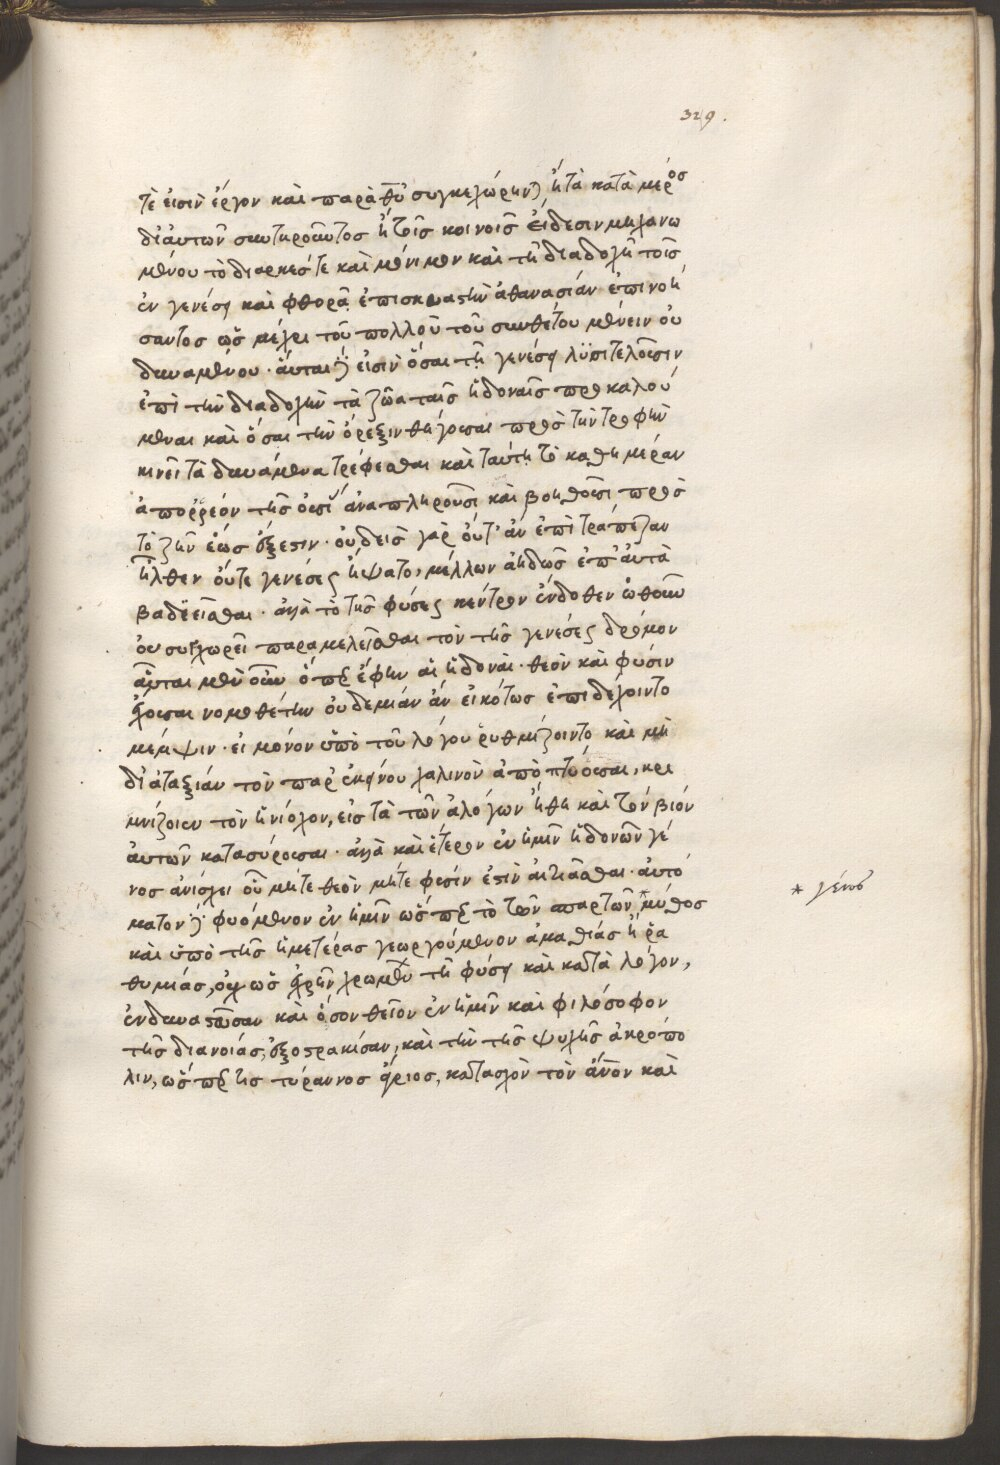 329.
τὲ εἰσὶν ἔργον καὶ παρὰ θῦ συγκεχώρην) ἢ τὰ κατὰ μέρος
δι' αὐτῶν σωτηροῦντος ἢ τοῖς κοινοῖς εἴδεσιν μηχανω
μένου τὸ διαρκές τε καὶ μόνιμον καὶ τῆ διαδοχῆ τοῖς
ἐν γενέσει καὶ φθορᾶ ἐπισκευαστὴν ἀθανασίαν ἐπινοή
σαντος ὡς μέχρι τοῦ πολλοῦ τοῦ συνθέτου μένειν οὐ
δυναμένου · αὗται δ' εἰσὶν ὅσαι τῆ γενέσει λυσιτελοῦσιν
ἐπὶ τὴν διαδοχὴν τὰ ζῶα ταῖς ἡδοναῖς προκαλού
μεναι καὶ ὅσαι τὴν ὄρεξιν θήγουσαι πρὸς τὴν τροφὴν
κινεῖ τὰ δυνάμενα τρέφεσθαι καὶ ταύτη τὸ καθημέραν
ἀπορρέον τῆς οὐσί ἀναπληροῦσι καὶ βοηθοῦσι πρὸς
τὸ ζῆν ἕως ἔξεστιν · οὐδεὶς γὰρ οὔτ' ἂν ἐπὶ τράπεζαν
ἦλθεν οὔτε γενέσεως ἥψατο, μέλλων ἀηδῶς ἐπ' αὐτὰ
βαδιεῖσθαι · ἀλλὰ τὸ τῆς φύσεως κέντρον ἔνδοθεν ὠθοῦν
οὐ συγχωρεῖ παραμελεῖσθαι τὸν τῆς γενέσεως δρόμον
αὗται μὲν οὖν ὅπερ ἔφην αἱ ἡδοναὶ · θεὸν καὶ φύσιν
ἔχουσαι νομοθέτην οὐδεμίαν ἂν εἰκότως ἐπιδέχοιντο
μέμψιν · εἰ μόνον ὑπὸ τοῦ λόγου ῥυθμίζοιντο καὶ μὴ
δι' ἀταξίαν τὸν παρ' ἐκείνου χαλινὸν ἀποπτύουσαι, κρη
μνίζοιεν τὸν ἡνίοχον, εἰς τὰ τῶν ἀλόγων ἤθη καὶ τὸν βίον
αὐτῶν κατασύρουσαι · ἀλλὰ καὶ ἕτερον ἐν ἡμῖν ἡδονῶν γέ
νος ἀνίσχει οὗ μήτε θεὸν μήτε φύσιν ἐστὶν αἰτιᾶσθαι · αὐτό
ματον δ' φυόμενον ἐν ἡμῖν ὥσπερ τὸ τῶν σπαρτῶν * μύθος
* γένος
καὶ ὑπὸ τῆς ἡμετέρας γεωργούμενον ἀμαθίας ἢ ῥα
θυμίας, οὐχ ὡς ἐχρῆν χρωμένου τῆ φύσει καὶ κατὰ λόγον,
ἐνδυναστεῦσαν καὶ ὅσον θεῖον ἐν ἡμῖν καὶ φιλόσοφον
τῆς διανοίας, ἐξοστρακίσαν, καὶ τὴν τῆς ψυχῆς ἀκρόπο
λιν, ὥσπερ τις τύραννος ἄγριος, κατασχὸν τὸν ἄνον καὶ